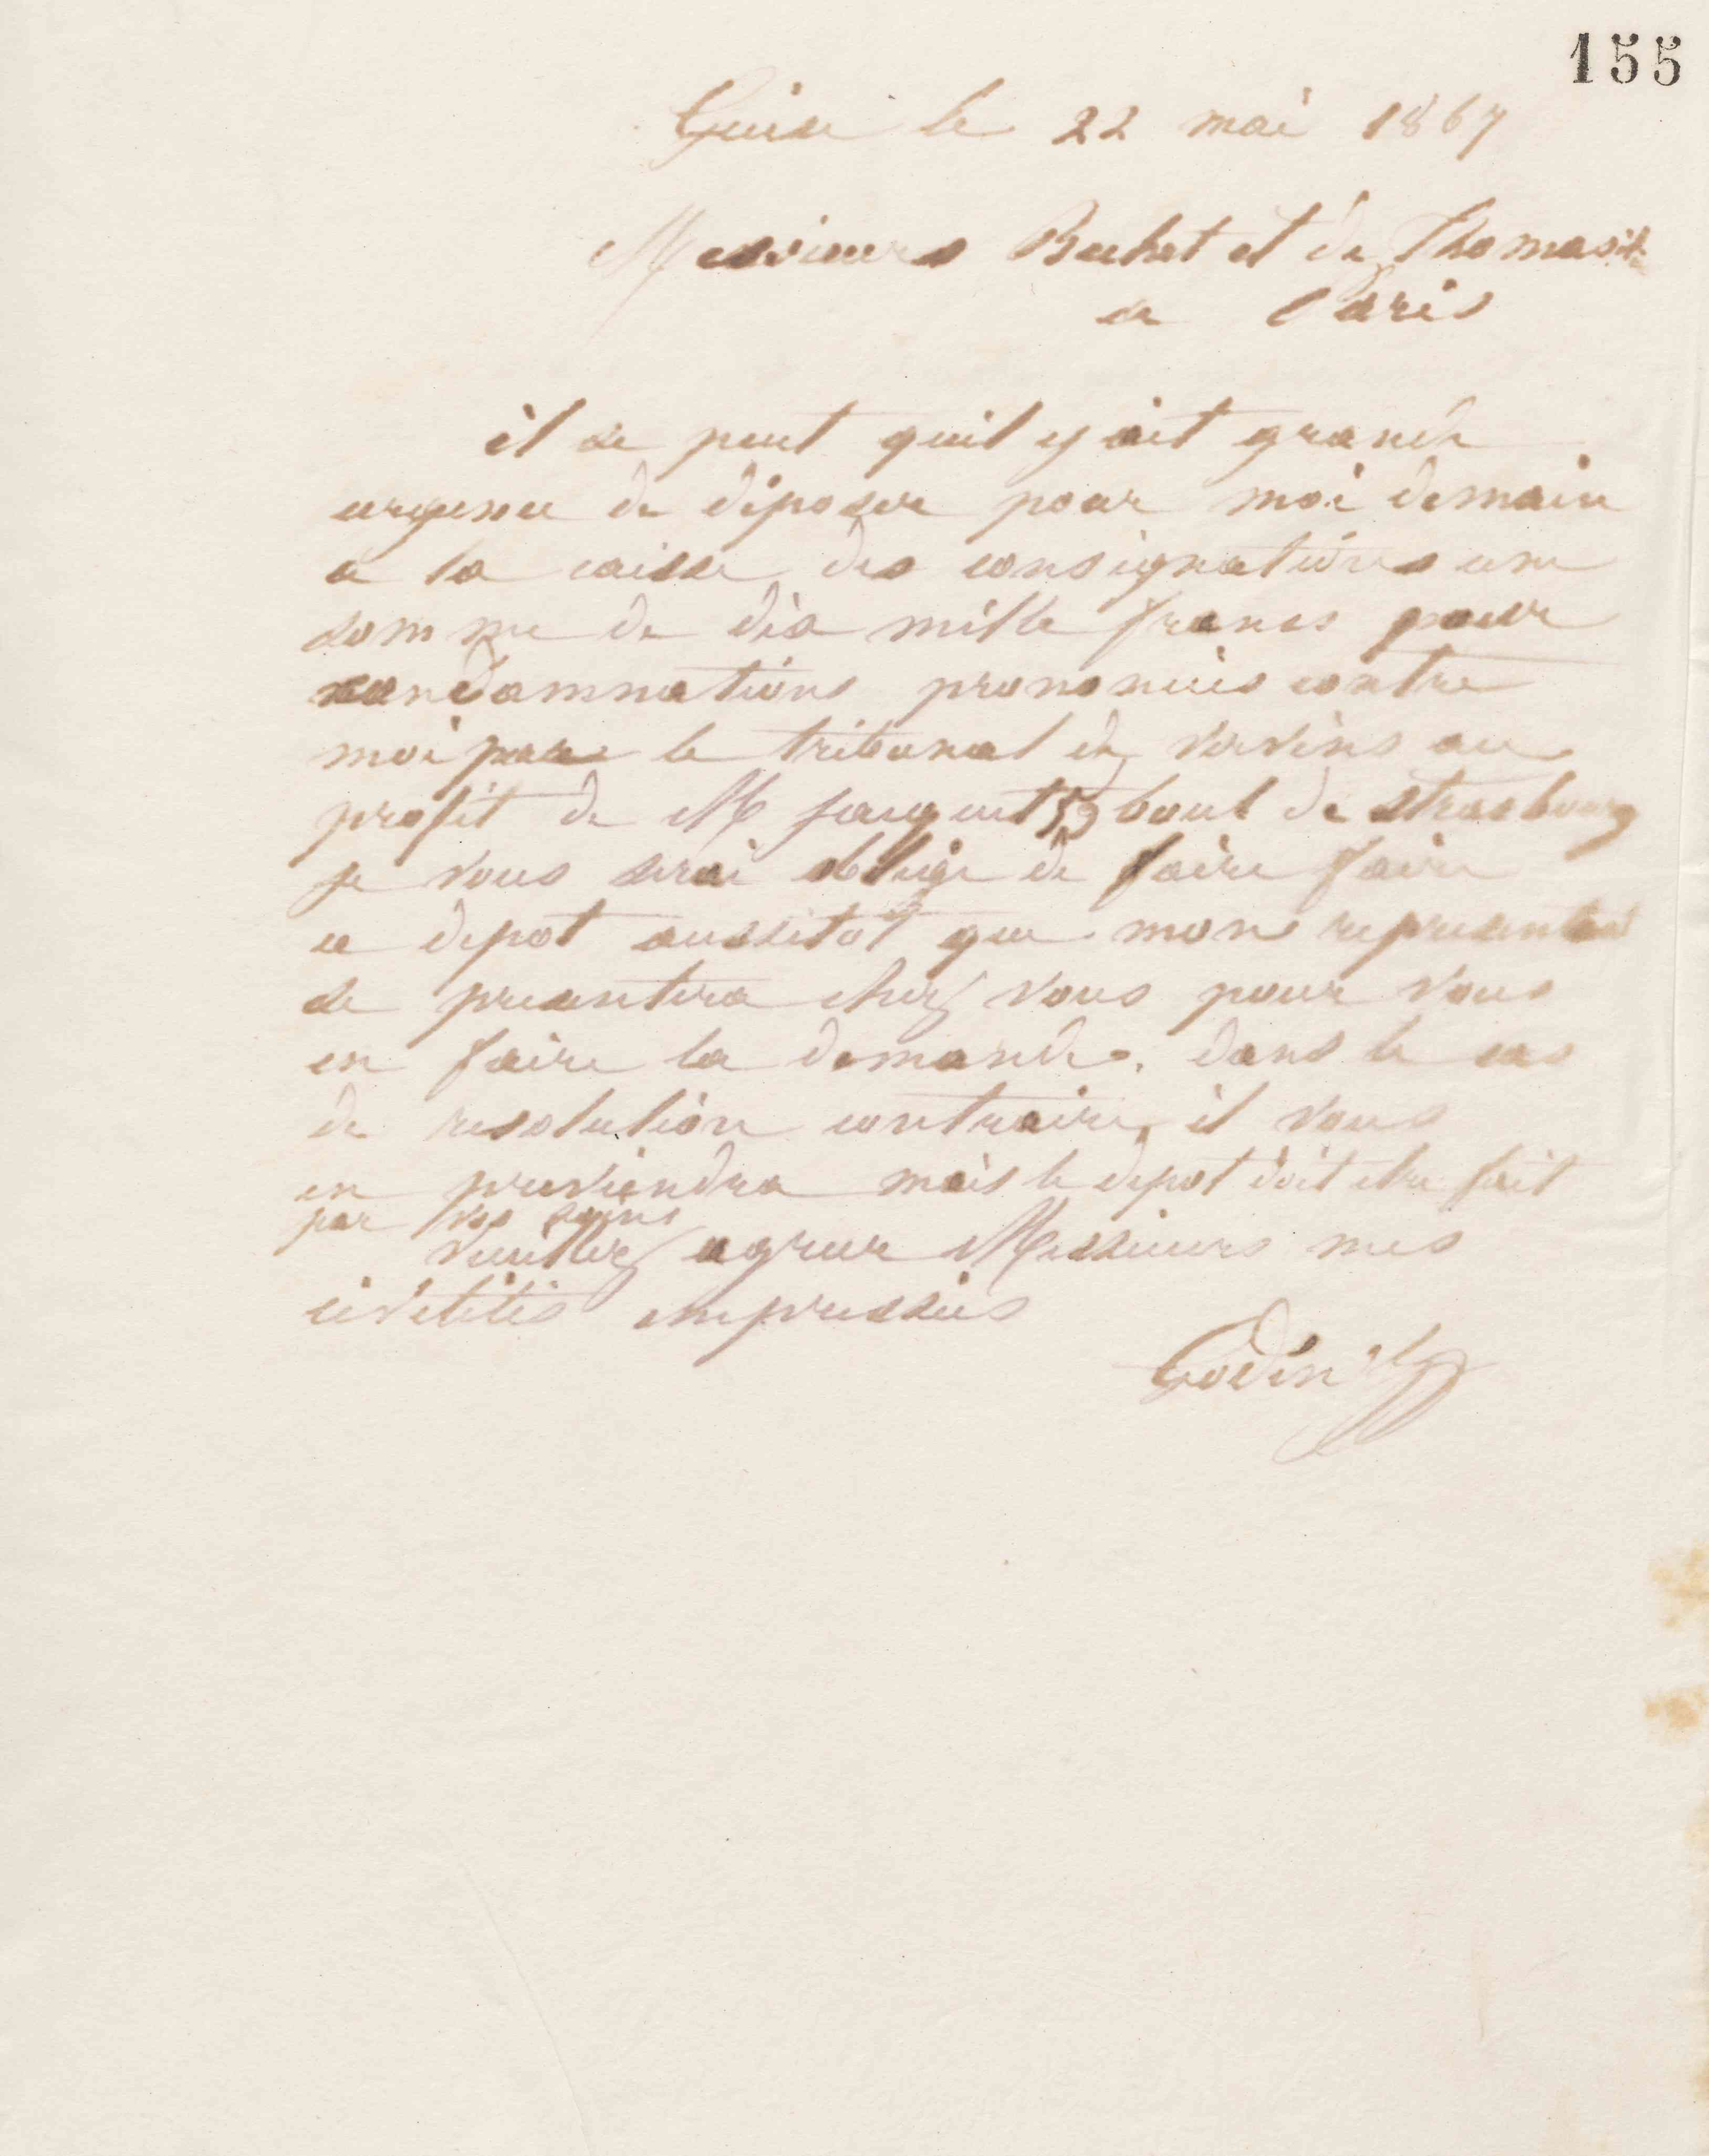 155
Guise le 22 mai 1867
Messieurs Bechet et de Thomas
a Paris
il se peut quil y ait grande
urgence de déposer pour moi demain
a la caisse des consignations une
somme de dix mille francs pour
condamnations prononcées contre
moi par le tribunal de Vervins au
profit de M 53 boul de Strasbourg
je vous serai obligé de faire faire
ce depot aussitot que mon representant
se presentera chez vous pour vous
en faire la demande. dans le cas
de resolution contraire, il vous
en previendra mais le depot doit etre fait
par vos soins
Veuillez agreer Messieurs mes
civilités empressées
Godin